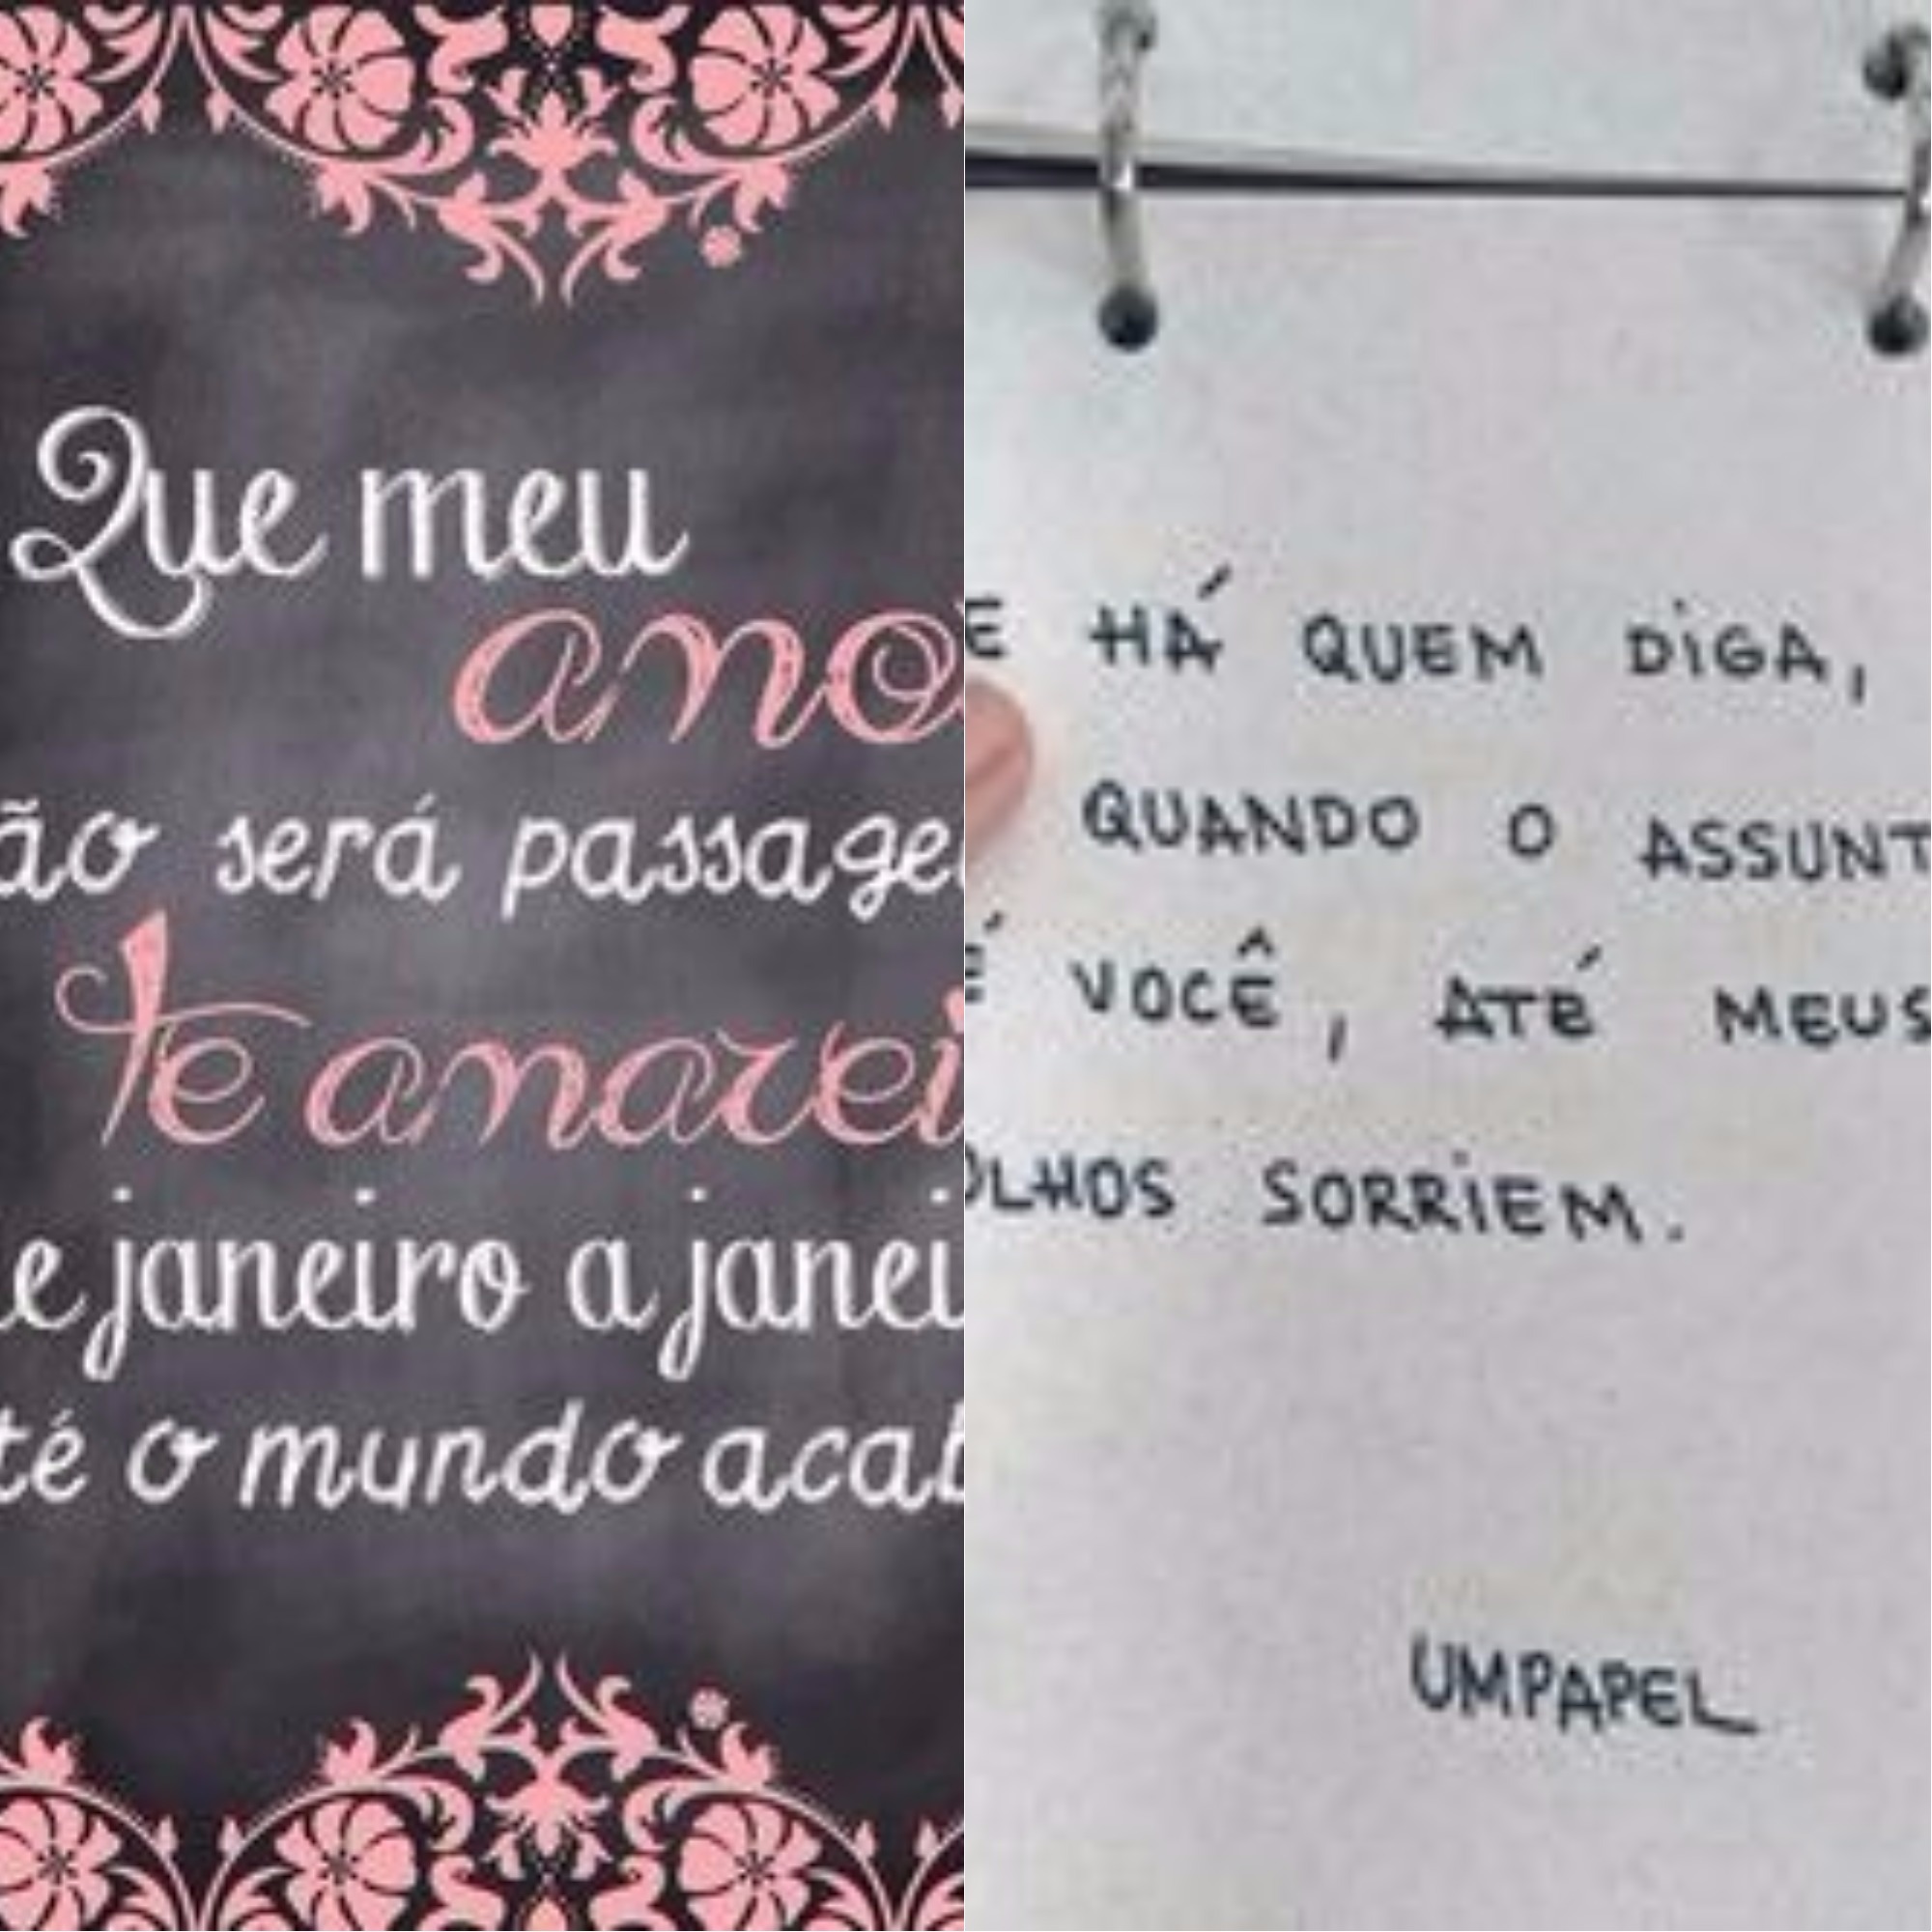 Que meu
amo
ão será passage
te amarei
e janeiro a janei
té o mundo acab
E HÁ QUEM DIGA,
QUANDO O ASSUNT
É VOCÊ, ATÉ MEUS
OLHOS SORRIEM.
UMPAPEL